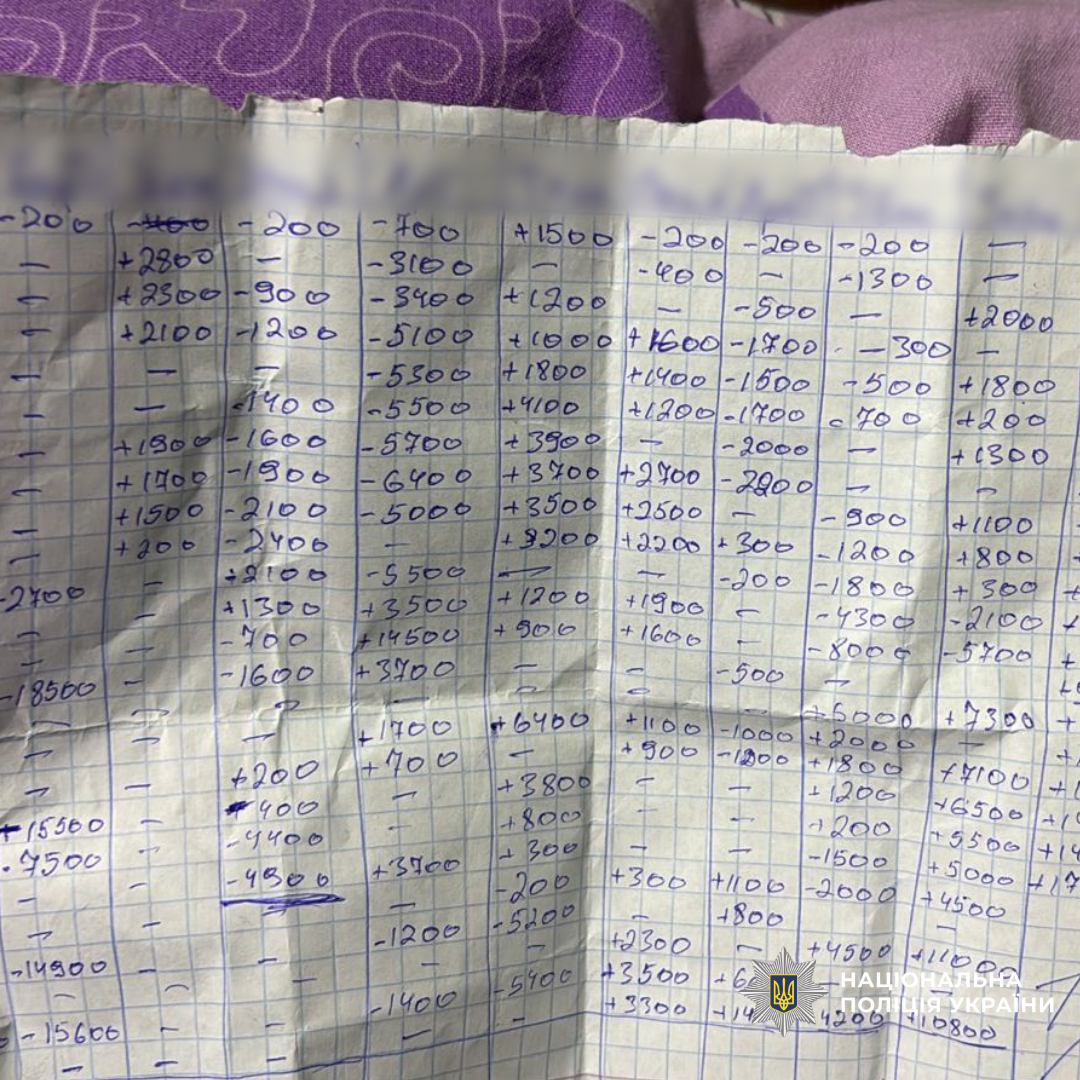 -200 -400 -200 -700 +1500 -200 -200 -200 —
— +2800 — -3100 — -400 — -1300 —
— +2300 -900 -3400 +1200 — -500 — +2000
— +2100 -1200 -5100 +1000 +1600 -1700 -300 —
— — — -5300 +1800 +1400 -1500 -500 +1800
— — -1400 -5500 +4100 +1200 -1700 -700 +200
— +1900 -1600 -5700 +3900 — -2000 — +1300
— +1700 -1900 -6400 +3700 +2700 — —
— +1500 -2100 -5000 +3500 +2500 — -900 +1100
— +200 -2400 — +2200 +300 -1200 +800
-2700 — +2100 -5500 — — -200 -1800 +300
— — +1300 +3500 +1200 +1900 — -4300 -2100
— — -700 +14500 +900 +1600 — -8000 -5700
-18500 — -1600 +3700 — — -500 —
— — — — — — — +5000 +7300
— — — +1700 +6400 +1100 -1000 +2000 —
— — +200 +700 — +900 +1800 +7100
+15500 — 400 — +3800 — — +1200 +6500
-7500 — -4400 — +800 — — +200 +5500
— — -4900 +3700 +300 — — -1500 +5000
— — — — -200 +300 +1100 -2000 +4500
-14900 — — -1200 -5200 — +800 —
— — — — — +2300 — +4500 +11000
-15600 — — -1400 -5400 +3500 —
— — — — — +3300 4200 +10800
НАЦІОНАЛЬНА
ПОЛІЦІЯ УКРАЇНИ